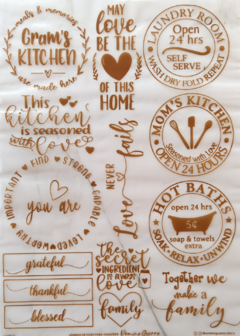 meals & memories
Gram's
KITCHEN
are made here
MAY
love
BE THE
OF THIS
HOME
LAUNDRY ROOM
Open
24 hrs
SELF
SERVE
WASH DRY FOLD REPEAT
This
kitchen
is seasoned
with love
NEVER
Love fails
MOM'S KITCHEN
Seasoned with love
OPEN 24 HOURS
FIND
STRONG
CAPABLE
LOVED
WORTHY
IMPORTANT
you are
HOT BATHS
open 24 hrs
5¢
soap & towels
extra
SOAK RELAX UNWIND
grateful
thankful
blessed
The
secret
INGREDIENT
IS ALWAYS
love
family
Together
we
make a
family